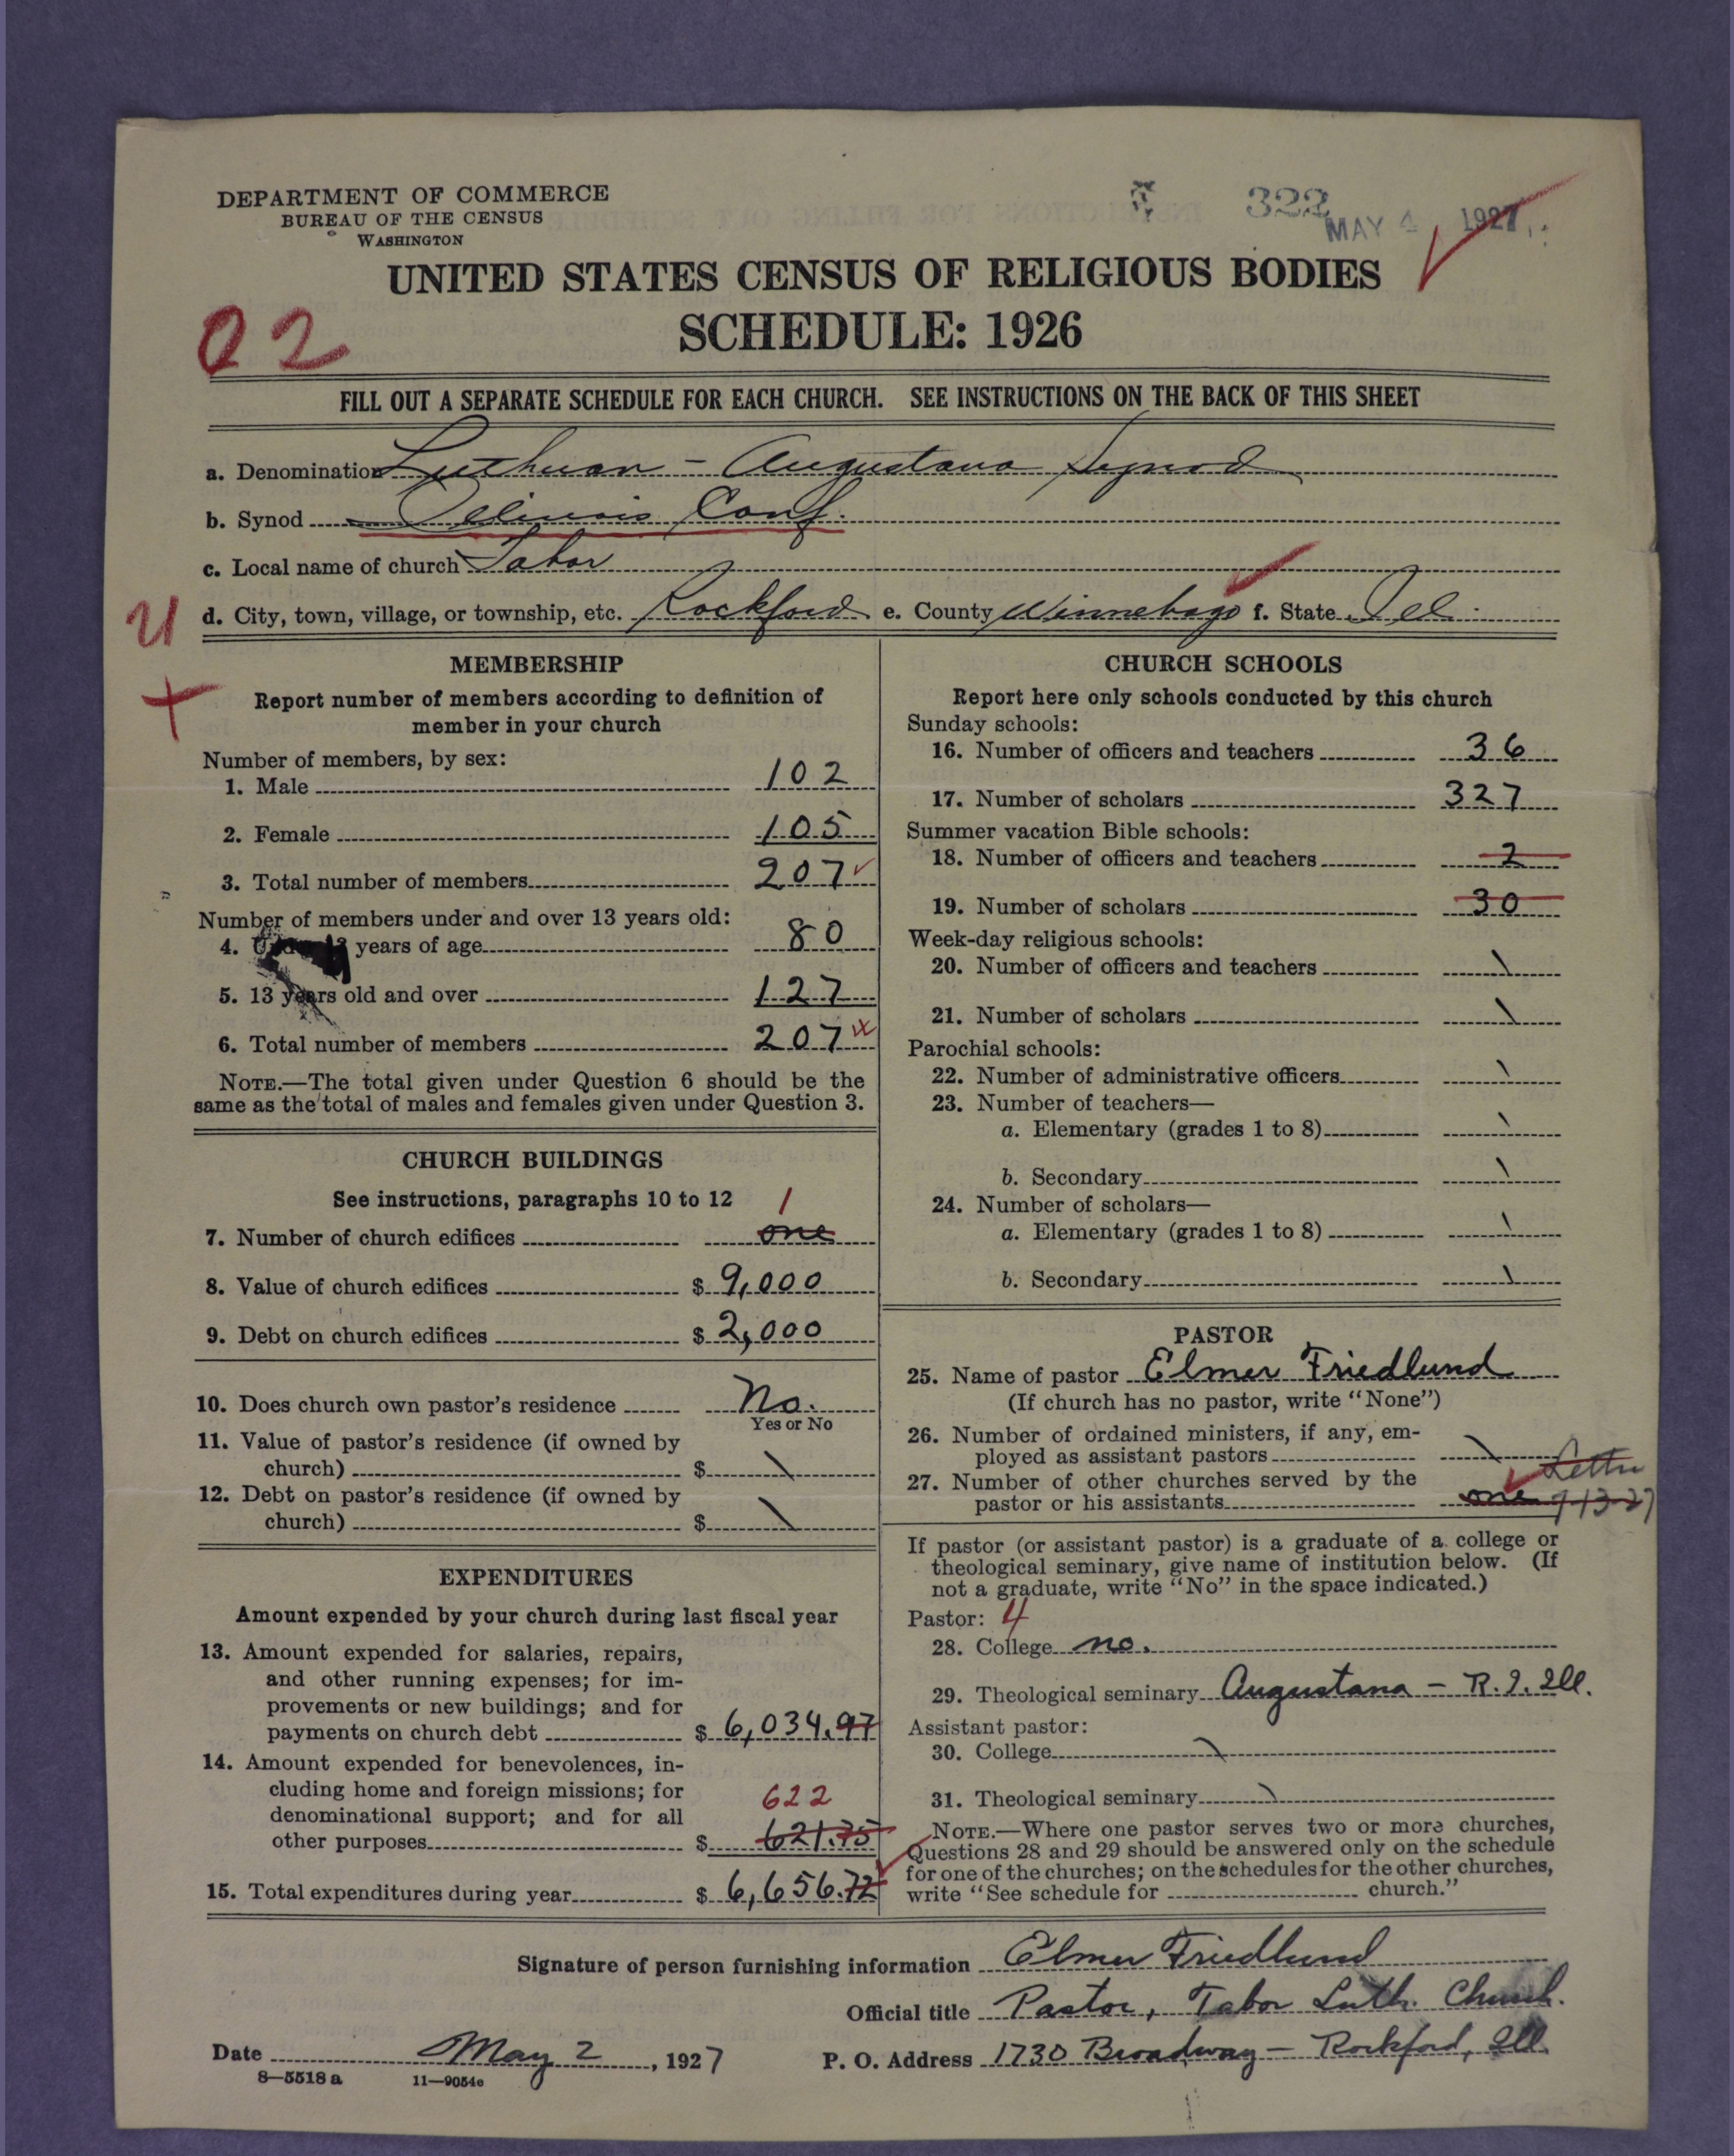 DEPARTMENT OF COMMERCE
BUREAU OF THE CENSUS
WASHINGTON
322
MAY 4 1927
UNITED STATES CENSUS OF RELIGIOUS BODIES
SCHEDULE: 1926
02
FILL OUT A SEPARATE SCHEDULE FOR EACH CHURCH. SEE INSTRUCTIONS ON THE BACK OF THIS SHEET
a. Denomination Lutheran - Augustana Synod
b. Synod Illinois Conf.
c. Local name of church Tabor
U
d. City, town, village, or township, etc. Rockford e. County Winnebago f. State Ill.
+
MEMBERSHIP
Report number of members according to definition of
member in your church
Number of members, by sex:
1. Male 102
2. Female 105
3. Total number of members 207
Number of members under and over 13 years old:
4. years of age 80
5. 13 years old and over 127
6. Total number of members 207
NOTE.—The total given under Question 6 should be the
same as the total of males and females given under Question 3.
CHURCH BUILDINGS
See instructions, paragraphs 10 to 12
1
7. Number of church edifices one
8. Value of church edifices $ 9,000
9. Debt on church edifices $ 2,000
10. Does church own pastor's residence No.
Yes or No
11. Value of pastor's residence (if owned by
church) $ \
12. Debt on pastor's residence (if owned by
church) $ \
EXPENDITURES
Amount expended by your church during last fiscal year
13. Amount expended for salaries, repairs,
and other running expenses; for im-
provements or new buildings; and for
payments on church debt $ 6,034.97
14. Amount expended for benevolences, in-
cluding home and foreign missions; for
denominational support; and for all
622
other purposes $ 621.75
15. Total expenditures during year $ 6,656.72
CHURCH SCHOOLS
Report here only schools conducted by this church
Sunday schools:
16. Number of officers and teachers 36
17. Number of scholars 327
Summer vacation Bible schools:
18. Number of officers and teachers 2
19. Number of scholars 30
Week-day religious schools:
20. Number of officers and teachers \
21. Number of scholars \
Parochial schools:
22. Number of administrative officers \
23. Number of teachers—
a. Elementary (grades 1 to 8) \
b. Secondary \
24. Number of scholars—
a. Elementary (grades 1 to 8) \
b. Secondary \
PASTOR
25. Name of pastor Elmer Friedlund
(If church has no pastor, write "None")
26. Number of ordained ministers, if any, em-
ployed as assistant pastors \
Letter
27. Number of other churches served by the
pastor or his assistants one 7-13-27
If pastor (or assistant pastor) is a graduate of a college or
theological seminary, give name of institution below. (If
not a graduate, write "No" in the space indicated.)
Pastor: 4
28. College no.
29. Theological seminary Augustana - R.I. Ill.
Assistant pastor:
30. College \
31. Theological seminary \
NOTE.—Where one pastor serves two or more churches,
Questions 28 and 29 should be answered only on the schedule
for one of the churches; on the schedules for the other churches,
write "See schedule for church."
Signature of person furnishing information Elmer Friedlund
Official title Pastor, Tabor Luth. Church.
Date May 2, 1927
P. O. Address 1730 Broadway - Rockford, Ill.
8—5518 a 11—9054c